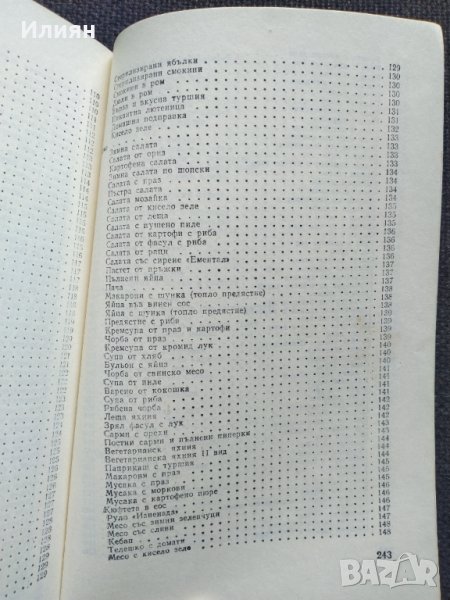 Илиян
Стерилизирани ябълки 129
Стерилизирани смокини 130
Смокини в ром 130
Дюли в ром 130
Бърза и вкусна туршия 130
Пикантна лютеница 131
Домашна подправка 131
Кисело зеле 132
Зимна салата 133
Салата от орна 133
Картофена салата 133
Зимна салата по шопски 133
Салата с праз 134
Пъстра салата 134
Салата мозайка 134
Салата от кисело зеле 134
Салата от леща 135
Салата с пушено пиле 135
Салата от картофи с риба 135
Салата от фасул с риба 136
Салата от раци 136
Салата със сирене «Ементал» 136
Пастет от пръжки 137
Пълнени яйца 137
Пача 137
Макарони с шунка (топло предястие) 138
Яйца във винен сос 138
Яйца с шунка (топло предястие) 138
Предястие с риба 139
Кремсупа от праз и картофи 139
Чорба от праз 139
Кремсупа от кромид лук 140
Супа от хляб 140
Бульон с яйца 140
Чорба от свинско месо 141
Супа от пиле 141
Варено от кокошка 141
Супа от риба 142
Рибена чорба 142
Леща яхния 142
Зрял фасул с лук 143
Сарми с орехи 143
Постни сарми и пълнени пиперки 144
Вегетарианска яхния 144
Вегетарианска яхния II вид 144
Паприкаш с туршия 145
Макарони с праз 145
Мусака с праз 145
Мусака с моркови 146
Мусака с картофено пюре 146
Кюфтета в сос 146
Руло «Изненада» 147
Месо със зимни зеленчуци 147
Месо със сливи 148
Кебап 148
Телешко с домати 148
Месо с кисело зеле
243
BAZAR